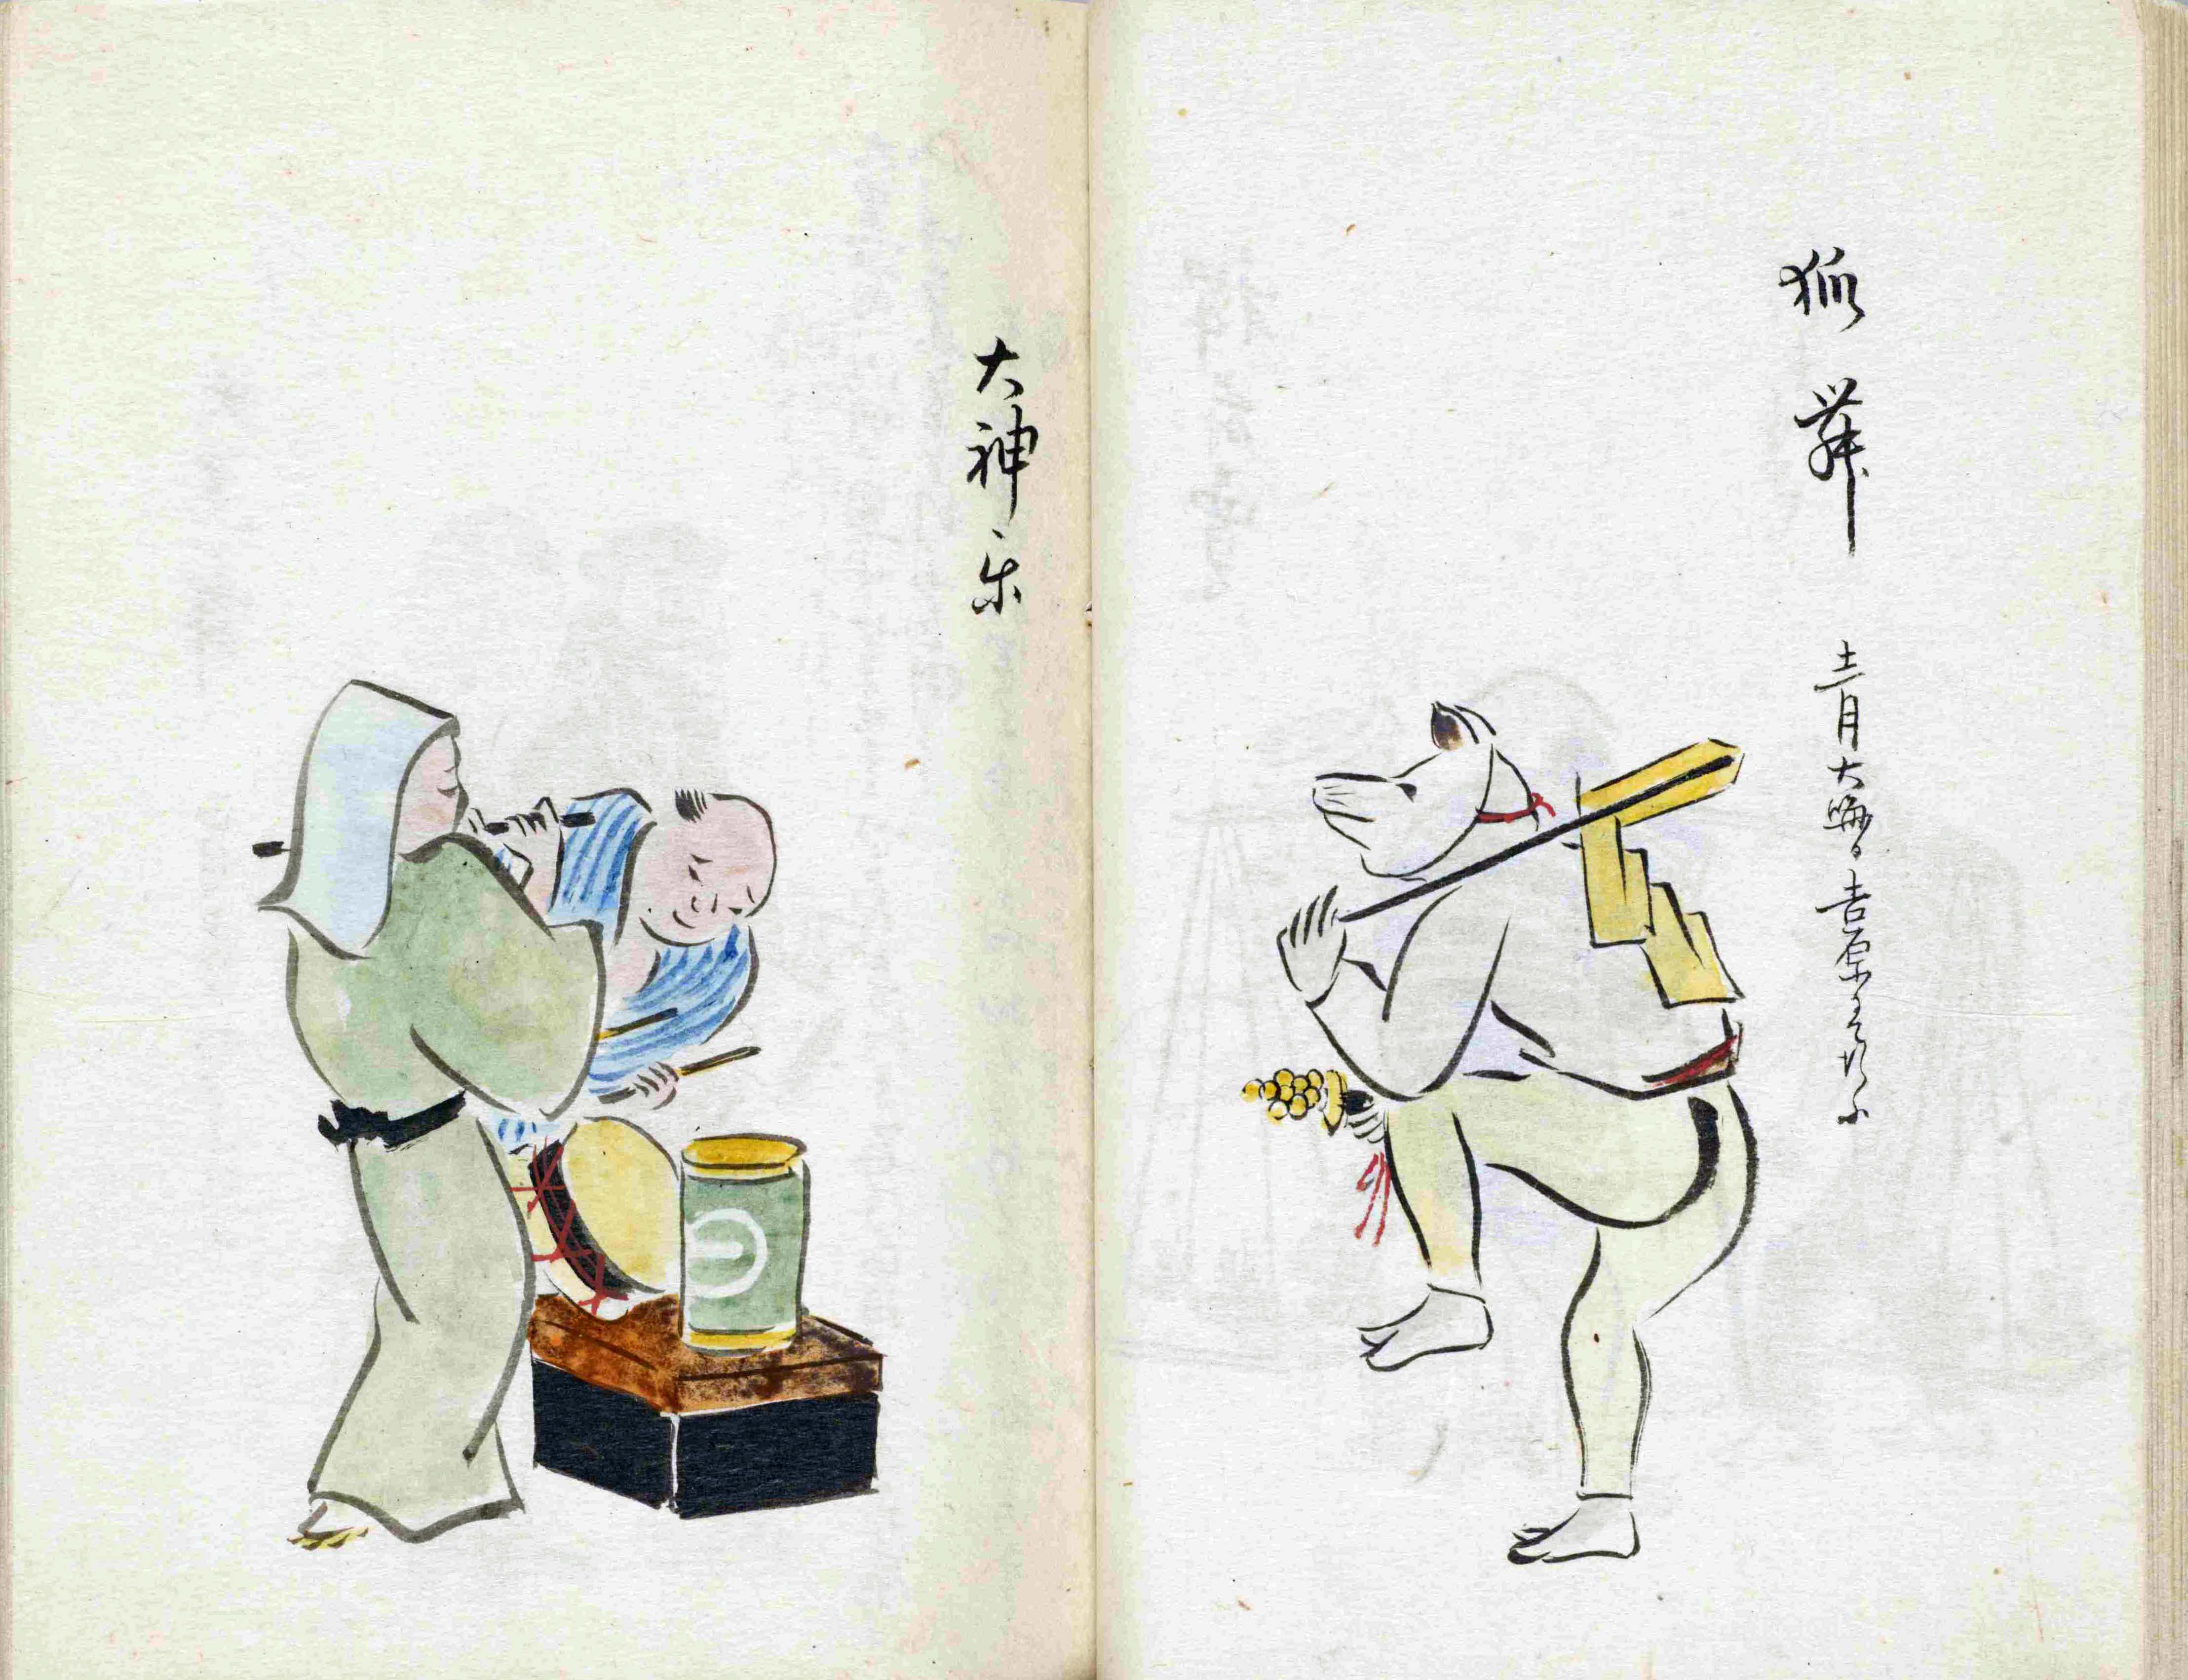 狐舞 十二月大晦日吉原にて行ふ
大神楽